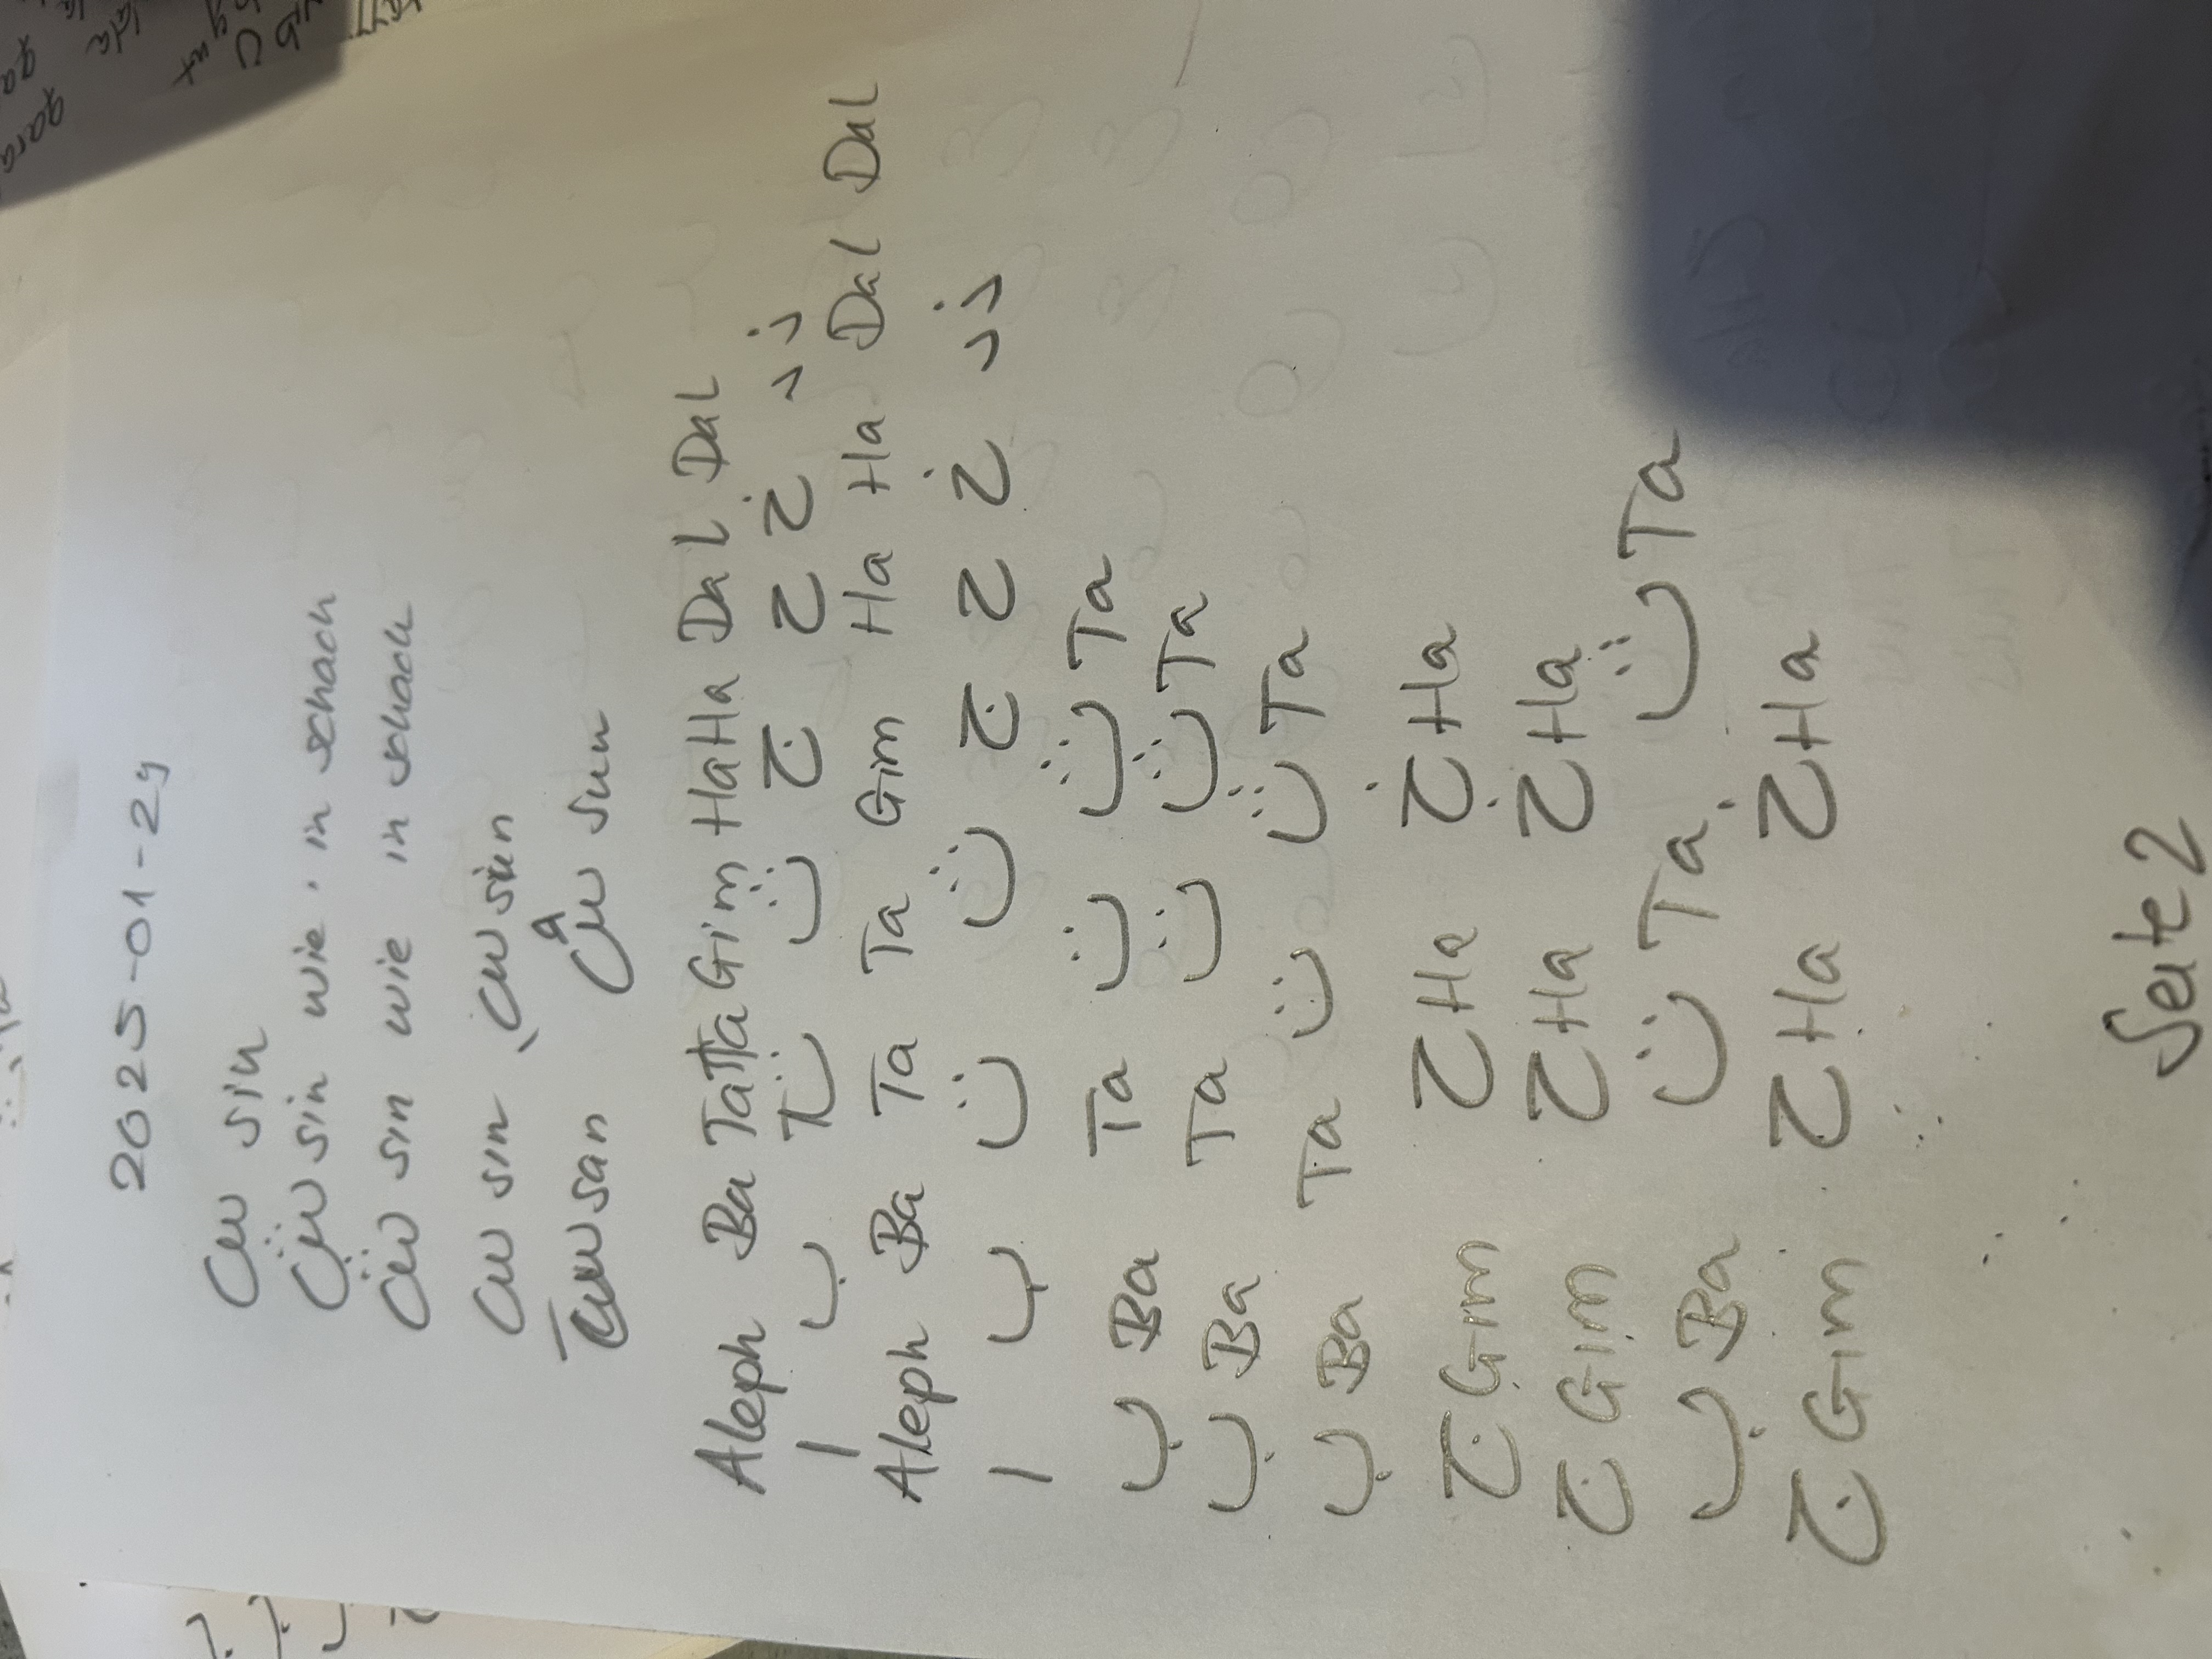 2025-01-29
س sin
ش sin wie in schach
ش sin wie in schach
س sin سِ sin
سَ san سُ sun
Aleph Ba Ta Ta Gim Ha Ha Dal Dal
ا ب ت ث ج ح خ د ذ
Aleph Ba Ta Ta Gim Ha Ha Dal Dal
ا ب ت ث ج ح خ د ذ
ب Ba Ta ت ث Ta
ب Ba Ta ت ث Ta
ب Ba Ta ت ث Ta
ج Gim ح Ha خ Ha
ج Gim ح Ha خ Ha
ب Ba ت Ta ث Ta
ج Gim ح Ha خ Ha
Seite 2